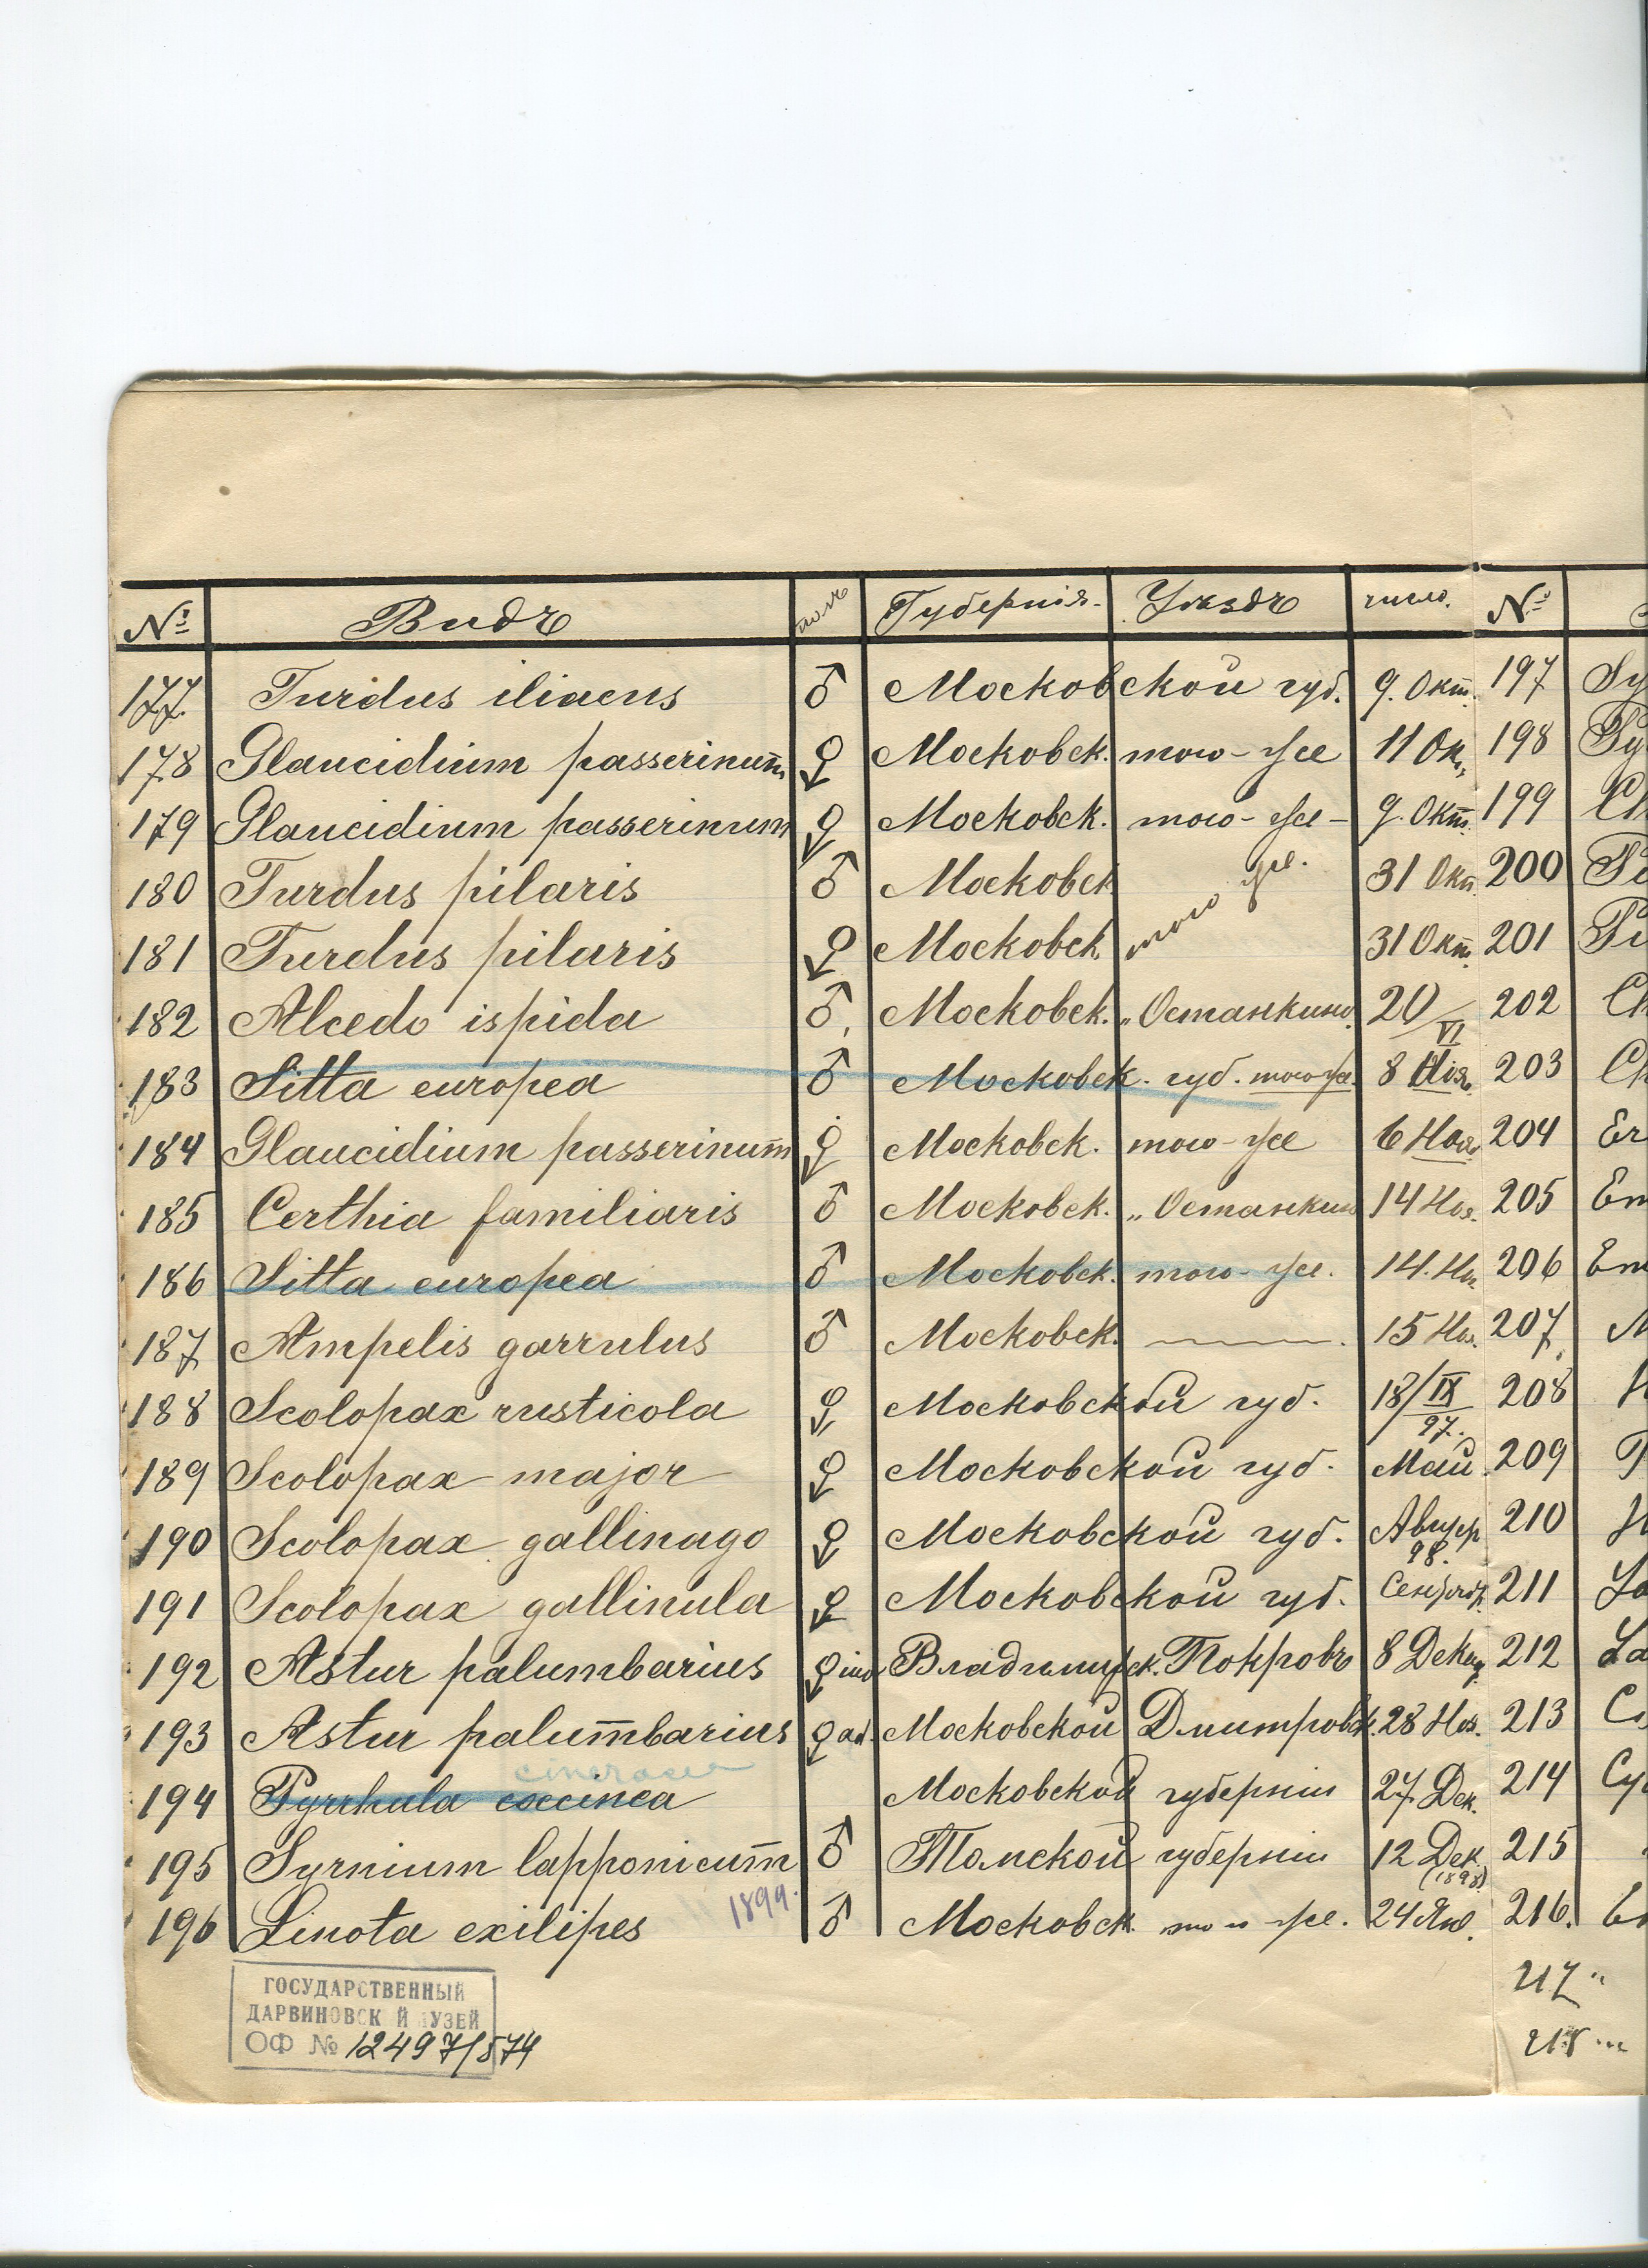 № Видъ полъ Губернія. Уѣздъ число. №
177. Turdus iliacus ♂ Московской губ. 9. Окт. 197 Sy
178 Glaucidium passerinum ♀ Московск. того-же 11 Ок. 198 Sy
179 Glaucidium passerinum ♀ Московск. того-же- 9. Окт. 199 Ch
180 Turdus pilaris ♂ Московск того же. 31 Окт. 200
181 Turdus pilaris ♀ Московск. 31 Окт. 201
182 Alcedo ispida ♂. Московск. „Останкино. 20/VI 202 Ch
183 Sitta europea ♂ Московск. губ. того же. 8 203 Ch
184 Glaucidium passerinum ♀ Московск. того-же 6 Ноя. 204 Er
185 Certhia familiaris ♂ Московск. „Останкин 14 Ноя. 205 Em
186 Sitta europea ♂ Московск. того-же. 14. Но. 206 Em
187 Ampelis garrulus ♂ Московск. 15 Ноя. 207 M
188 Scolopax rusticola ♀ Московской губ. 18/IX 97. 208 H
189 Scolopax major ♀ Московской губ. Май 209
190 Scolopax gallinago ♀ Московской губ. 98. 210 H
191 Scolopax gallinula ♀ Московской губ. 211
192 Astur palumbarius ♀ Владимирск. Покровъ 8 Декаб. 212 La
193 Astur palumbarius ♀ ad. Московской Дмитровск. 28 Ноя. 213
cineracea
194 Pyrrhula coccinea Московской губерніи 27. Дек. 214 Cy
195 Syrnium lapponicum ♂ Томской губерніи 12 Дек. (1898) 215
196 Linota exilipes 1899. ♂ Московск. того же. 24 Янв. 216.
217 "
218 "
ГОСУДАРСТВЕННЫЙ
ДАРВИНОВСК Й УЗЕЙ
ОФ № 12497/574